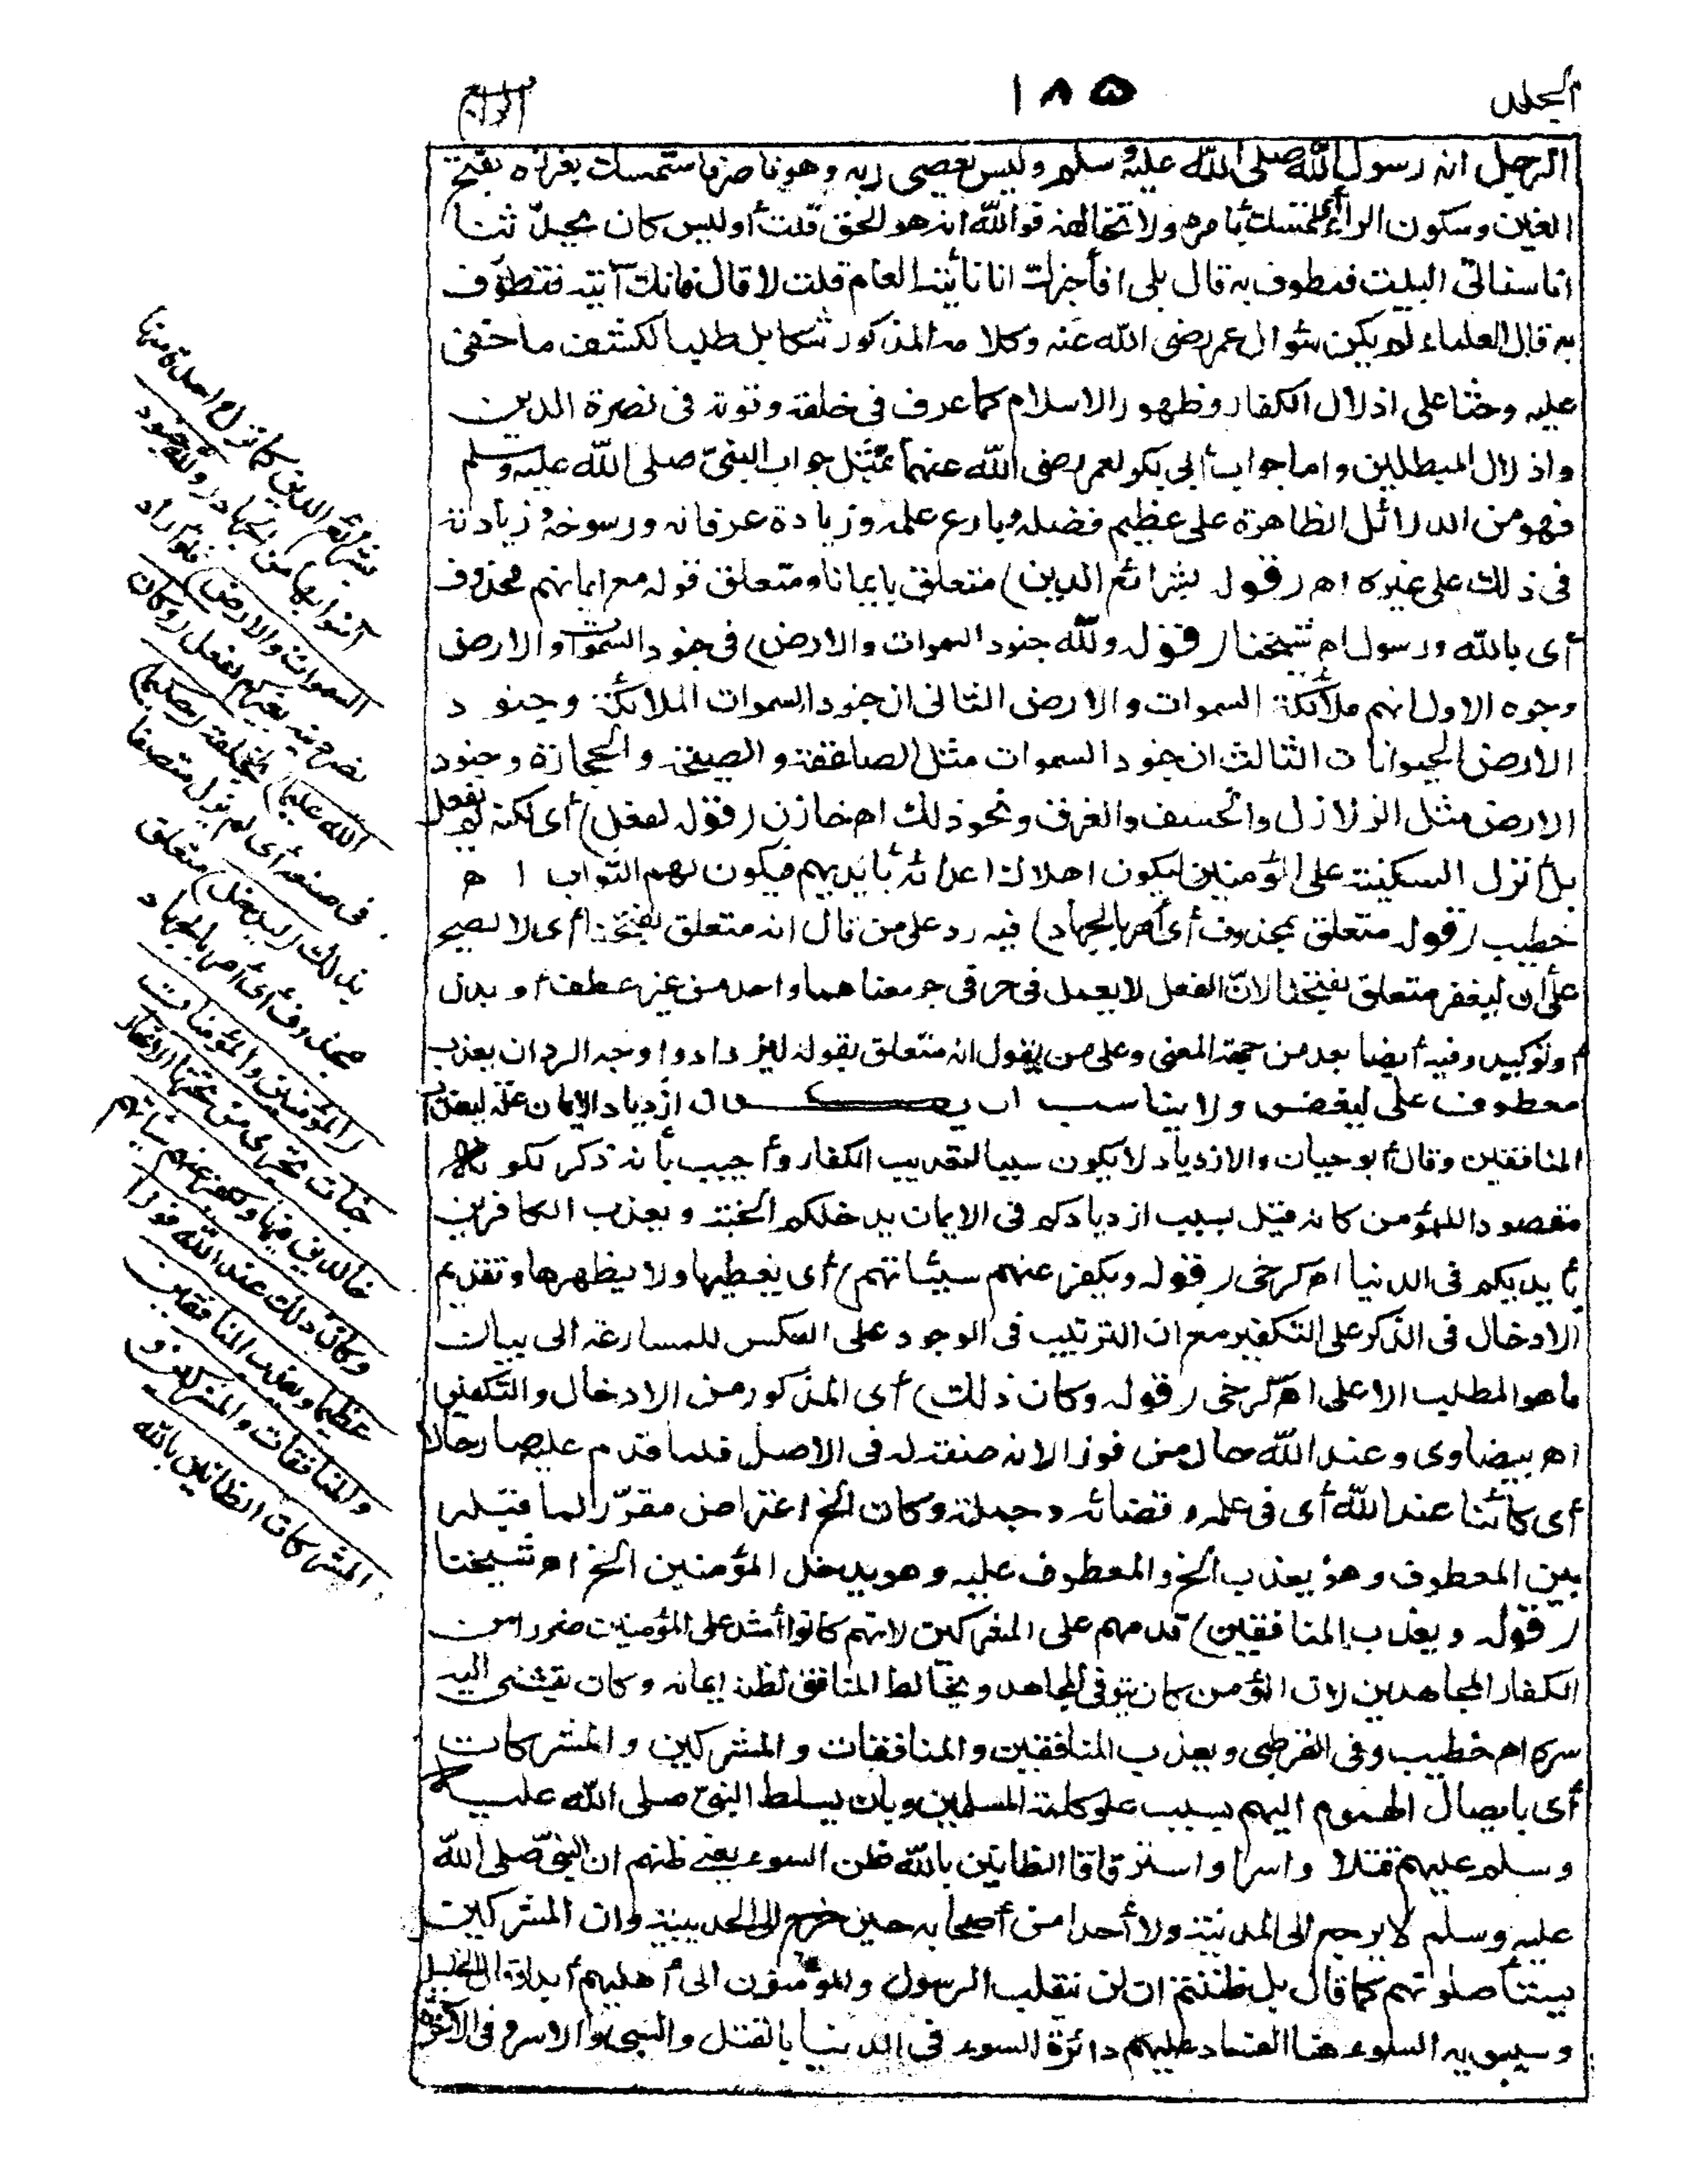 المجلد
١٨٥
الرابع
الرجل انه رسول الله صلى الله عليه وسلم وليس يعصى ربه وهو ناصره فاستمسك بغرزه بفتح
الغين وسكون الراء أى تمسك بأمره ولا تخالفه فوالله انه هو الحق قلت أو ليس كان يحدثنا
انا سنأتى البيت فنطوف به قال بلى افأخبرك انا نأتيه العام قلت لا قال فانك آتيه فتطوف
به قال العلماء لم يكن سؤال عمر رضى الله عنه وكلامه المذكور شكا بل طلبا لكشف ما خفى
عليه وحثا على اذلال الكفار وظهور الاسلام كما عرف فى خلقه وقوته فى نصرة الدين
واذلال المبطلين واما جواب أبى بكر لعمر رضى الله عنهما بمثل جواب النبىّ صلى الله عليه وسلم
فهو من الدلائل الظاهرة على عظيم فضله وبارع علمه وزيادة عرفانه ورسوخه وزيادته
فى ذلك على غيره اهـ (قوله بشرائع الدين) متعلق بايمانا ومتعلق قوله مع ايمانهم محذوف
أى بالله ورسوله اهـ شيخنا (قوله ولله جنود السموات والارض) فى جنود السموات والارض
وجوه الاول انهم ملائكة السموات والارض الثانى ان جنود السموات الملائكة وجنود
الارض الحيوانات الثالث ان جنود السموات مثل الصاعقة والصيحة والحجارة وجنود
الارض مثل الزلازل والخسف والغرق ونحو ذلك اهـ خازن (قوله لفعل) أى لكنه لم يفعل
بل أنزل السكينة على المؤمنين ليكون اهلاك اعدائه بأيديهم فيكون لهم الثواب اهـ
خطيب (قوله متعلق بمحذوف أى أمر بالجهاد) فيه رد على من قال انه متعلق بفتحنا أى لا يصح
على أن ليغفر متعلق بفتحنا لانّ الفعل لا يعمل فى حرفى جر معناهما واحد من غير عطف أو بدل
أو توكيد وفيه أيضا بعد من جهة المعنى وعلى من يقول انه متعلق بقوله ليزدادوا وجه الرد ان يعذب
معطوف على ليدخل ولا يناسب ان يكون ازدياد الايمان علة ليعذب
المنافقين وقال أبو حيان والازدياد لا يكون سببا لتعذيب الكفار وأجيب بأنه ذكر لكونه
مقصودا للمؤمن كانه قيل بسبب ازديادكم فى الايمان يدخلكم الجنة ويعذب الكافرين
بأيديكم فى الدنيا اهـ كرخى (قوله ويكفر عنهم سيئاتهم) أى يغطيها ولا يظهرها وتقديم
الادخال فى الذكر على التكفير مع ان الترتيب فى الوجود على العكس للمسارعة الى بيان
ما هو المطلب الاعلى اهـ كرخى (قوله وكان ذلك) أى المذكور من الادخال والتكفير
اهـ بيضاوى وعند الله حال من فوزا لانه صفته له فى الاصل فلما قدم عليه صار حالا
أى كائنا عند الله أى فى علمه وقضائه وجملة وكان الخ اعتراض مقرّر لما قبله
بين المعطوف وهو يعذب الخ والمعطوف عليه وهو يدخل المؤمنين الخ اهـ شيخنا
(قوله ويعذب المنافقين) قدمهم على المشركين لانهم كانوا أشد على المؤمنين ضررا من
الكفار المجاهدين لان المؤمن كان يتوقى المجاهد ويخالط المنافق لظنه ايمانه وكان يفشى اليه
سره اهـ خطيب وفى القرطبى ويعذب المنافقين والمنافقات والمشركين والمشركات
أى بايصال الهموم اليهم بسبب علو كلمة المسلمين وبان يسلط النبىّ صلى الله عليه
وسلم عليهم قتلا واسرا واسترقاقا الظانين بالله ظن السوء يعنى ظنهم ان النبىّ صلى الله
عليه وسلم لا يرجع الى المدينة ولا أحدا من أصحابه حين خرج الى الحديبية وان المشركين
يستأصلونهم كما قال بل ظننتم ان لن ينقلب الرسول والمؤمنون الى أهليهم أبدا وقال الخليل
وسيبويه السوء هنا الفساد عليهم دائرة السوء فى الدنيا بالقتل والسبى والاسر وفى الآخرة
بشرائع الدين كلما نزل واحدة منها
آمنوا بها من الجهاد (ولله جنود
السموات والارض) فلو أراد
نصر دينه بغيركم لفعل (وكان
الله عليما) بخلقه (حكيما)
فى صنعه أى لم يزل متصفا
بذلك (ليدخل) متعلق
بمحذوف أى أمر بالجهاد
(المؤمنين والمؤمنات
جنات تجرى من تحتها الانهار
خالدين فيها ويكفر عنهم سيئاتهم
وكان ذلك عند الله فوزا
عظيما ويعذب المنافقين
والمنافقات والمشركين و
المشركات الظانين بالله